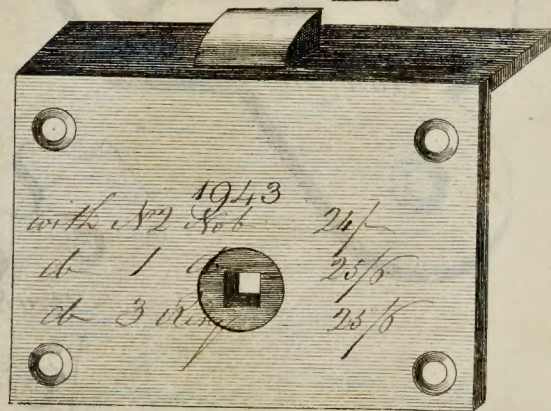 1943
with No2 Nob 24/-
do 1 do 25/6
do 3 Ring 25/6